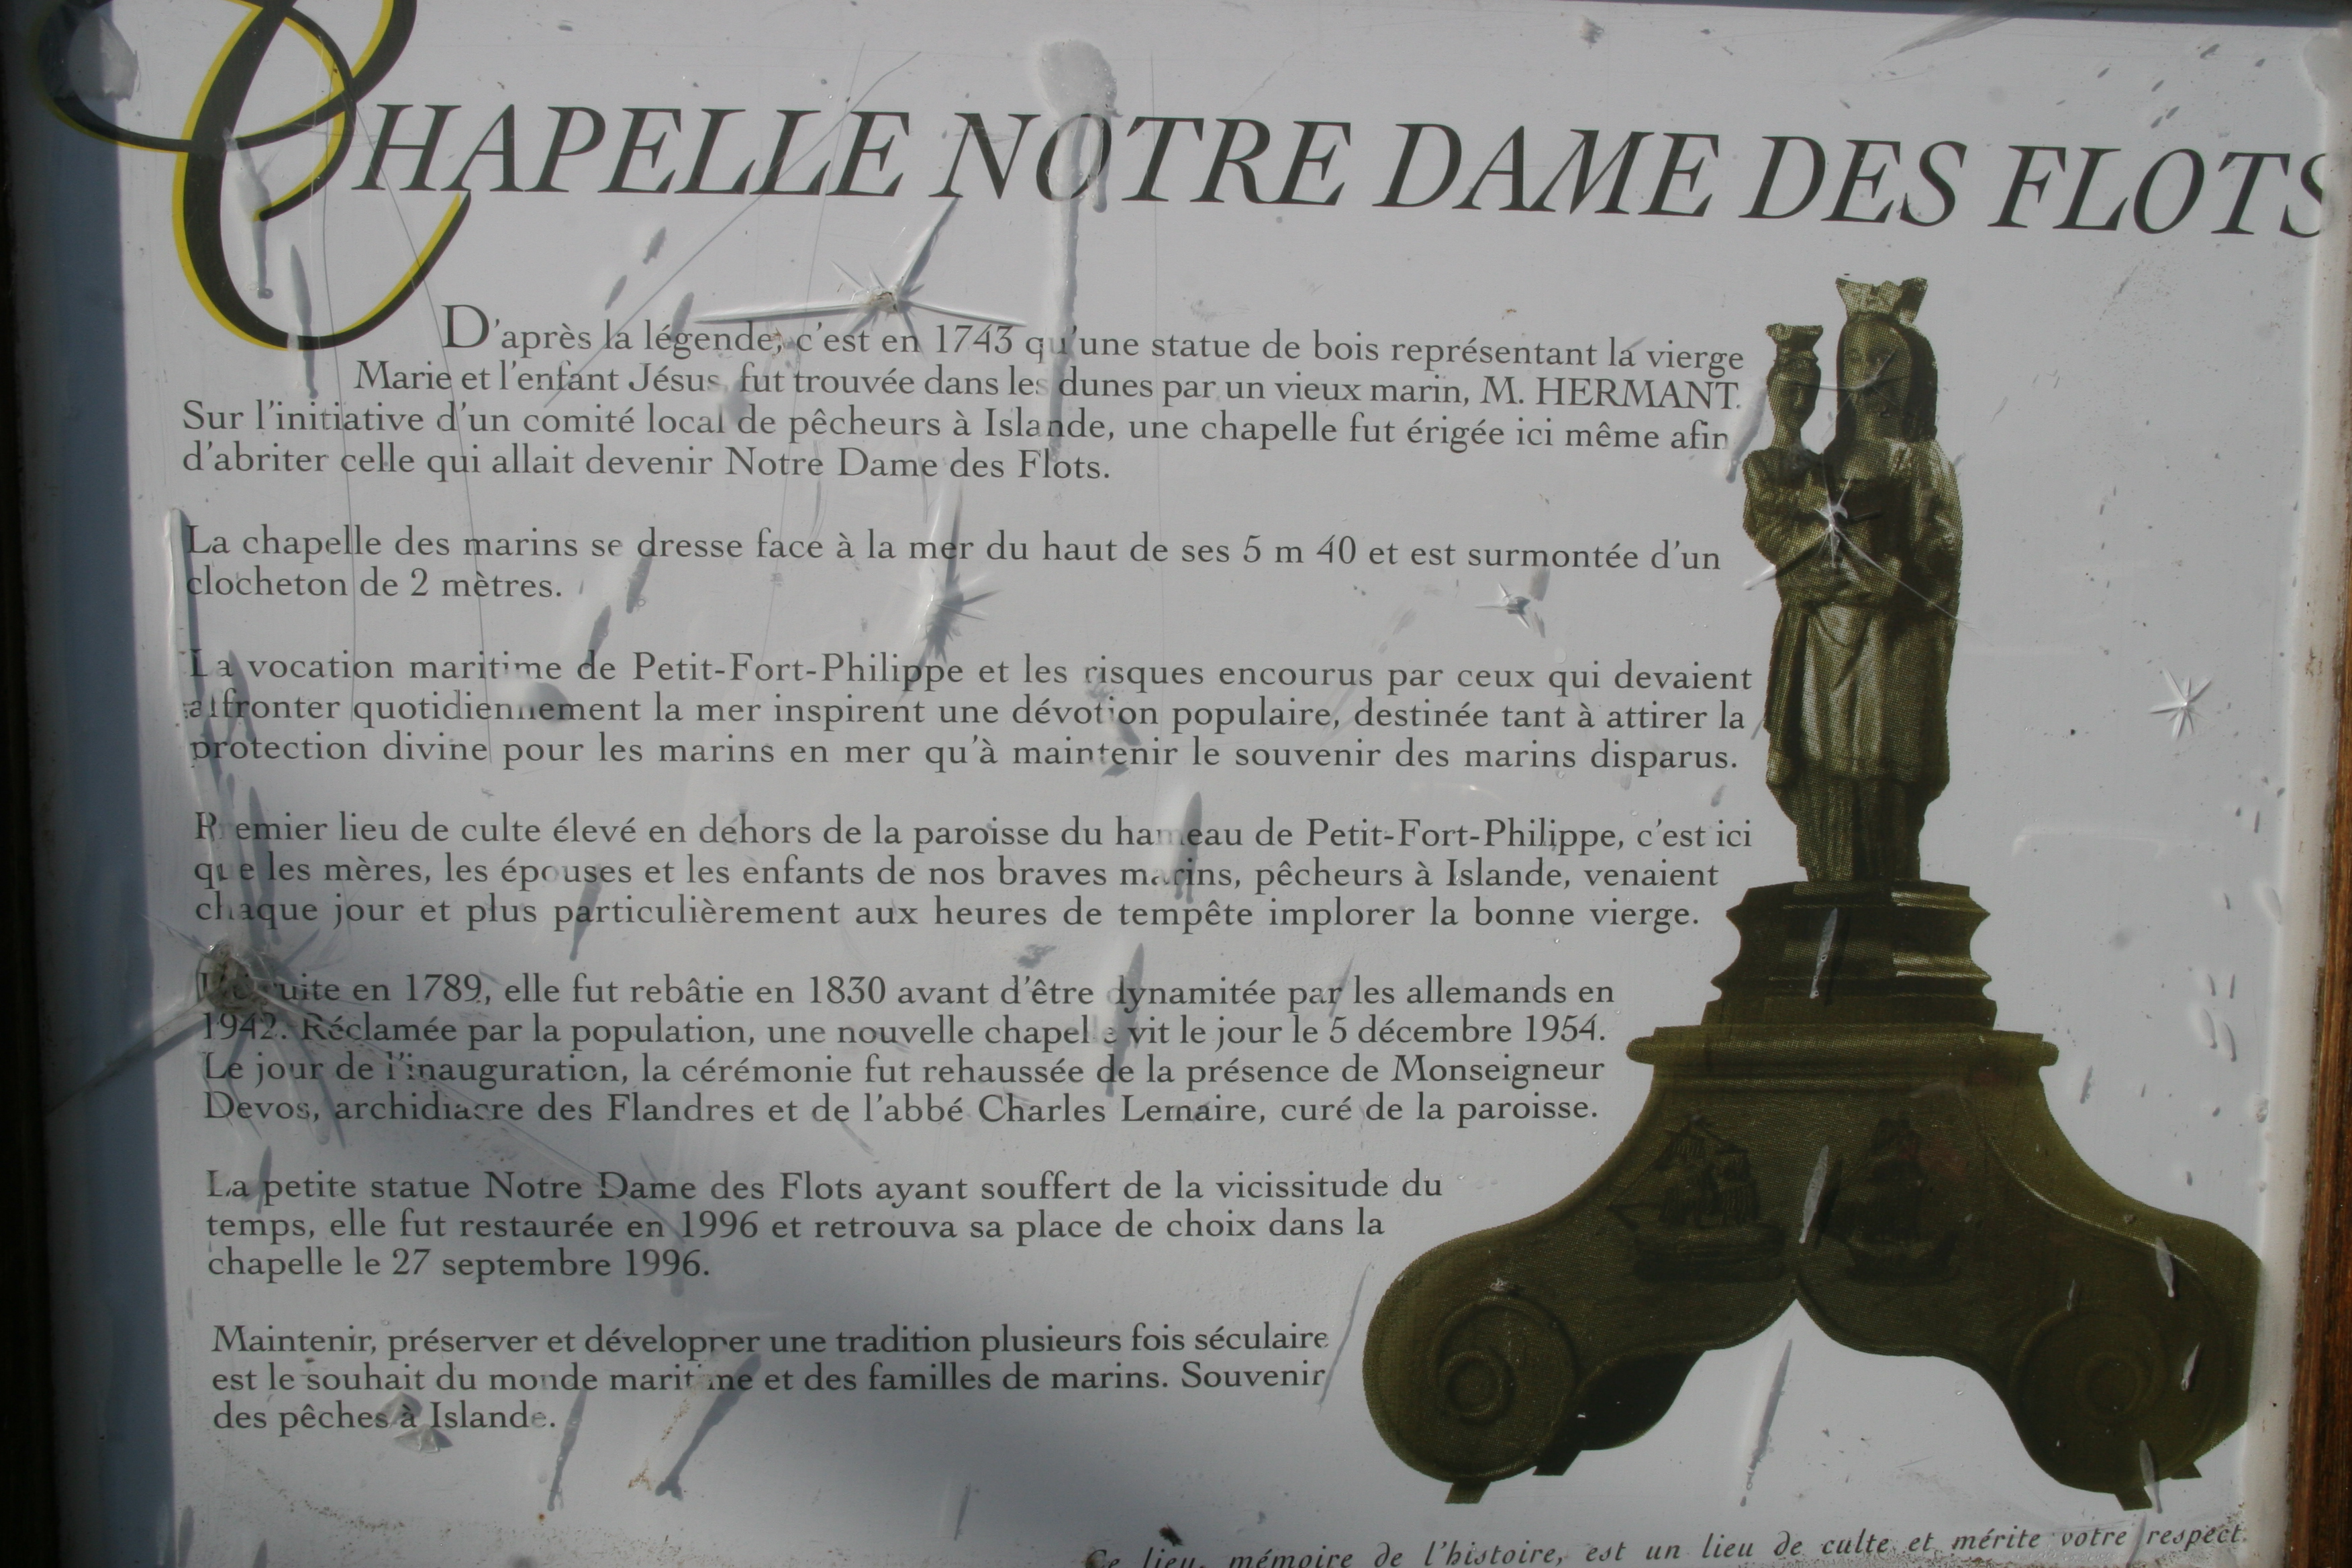 CHAPELLE NOTRE DAME DES FLOTS
D'après la légende, c'est en 1743 qu'une statue de bois représentant la vierge
Marie et l'enfant Jésus, fut trouvée dans les dunes par un vieux marin, M. HERMANT.
Sur l'initiative d'un comité local de pêcheurs à Islande, une chapelle fut érigée ici même afin
d'abriter celle qui allait devenir Notre Dame des Flots.
La chapelle des marins se dresse face à la mer du haut de ses 5 m 40 et est surmontée d'un
clocheton de 2 mètres.
La vocation maritime de Petit-Fort-Philippe et les risques encourus par ceux qui devaient
affronter quotidiennement la mer inspirent une dévotion populaire, destinée tant à attirer la
protection divine pour les marins en mer qu'à maintenir le souvenir des marins disparus.
Premier lieu de culte élevé en dehors de la paroisse du hameau de Petit-Fort-Philippe, c'est ici
que les mères, les épouses et les enfants de nos braves marins, pêcheurs à Islande, venaient
chaque jour et plus particulièrement aux heures de tempête implorer la bonne vierge.
en 1789, elle fut rebâtie en 1830 avant d'être dynamitée par les allemands en
1942. Réclamée par la population, une nouvelle chapelle vit le jour le 5 décembre 1954.
Le jour de l'inauguration, la cérémonie fut rehaussée de la présence de Monseigneur
Devos, archidiacre des Flandres et de l'abbé Charles Lemaire, curé de la paroisse.
La petite statue Notre Dame des Flots ayant souffert de la vicissitude du
temps, elle fut restaurée en 1996 et retrouva sa place de choix dans la
chapelle le 27 septembre 1996.
Maintenir, préserver et développer une tradition plusieurs fois séculaire
est le souhait du monde maritime et des familles de marins. Souvenir
des pêches à Islande.
Ce lieu, mémoire de l'histoire, est un lieu de culte et mérite votre respect.